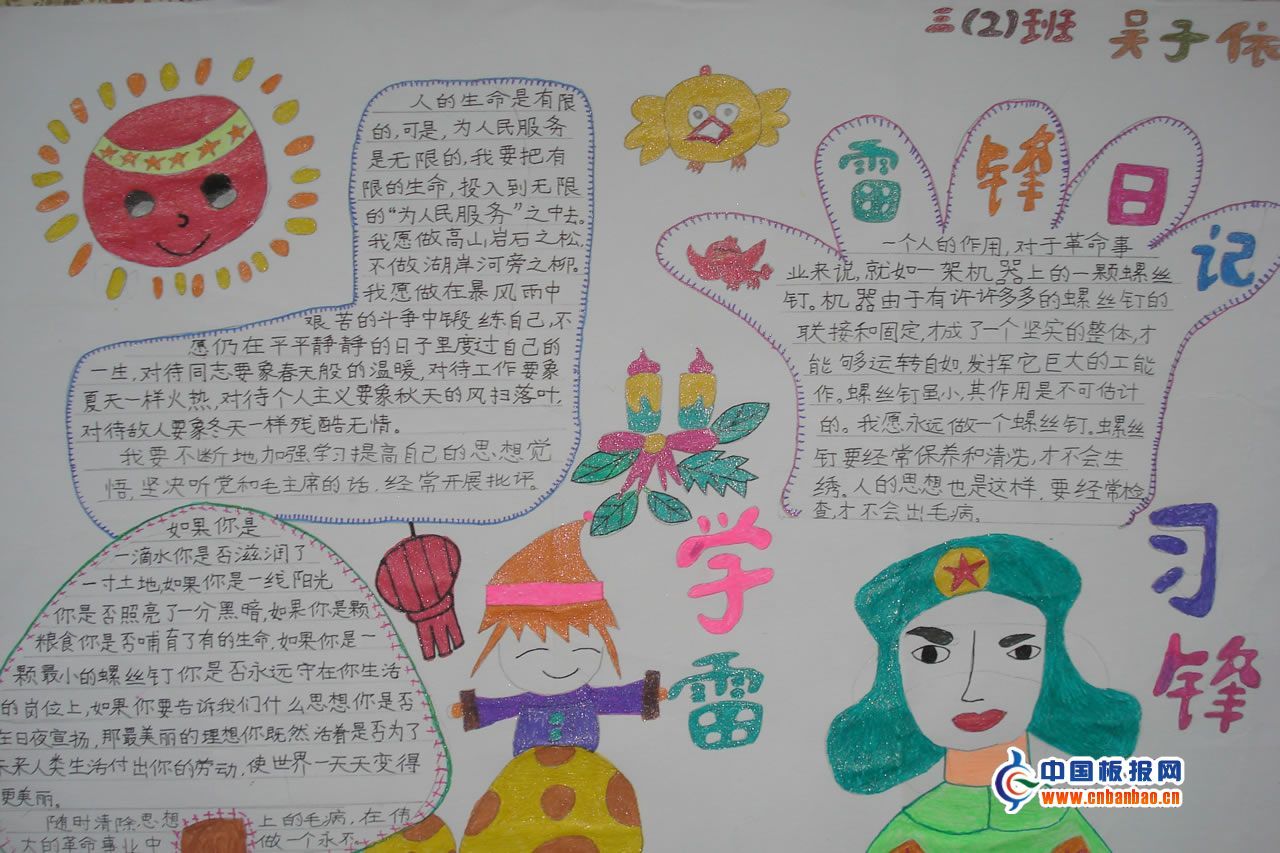 三(2)班 吴子依
人的生命是有限
的,可是,为人民服务
是无限的,我要把有
限的生命,投入到无限
的“为人民服务”之中去。
我愿做高山岩石之松,
不做湖岸河旁之柳。
我愿做在暴风雨中
艰苦的斗争中锻练自己,不
愿仍在平平静静的日子里度过自己的
一生,对待同志要象春天般的温暖,对待工作要象
夏天一样火热,对待个人主义要象秋天的风扫落叶,
对待敌人要象冬天一样残酷无情。
我要不断地加强学习提高自己的思想觉
悟,坚决听党和毛主席的话,经常开展批评。
雷锋日记
一个人的作用,对于革命事
业来说,就如一架机器上的一颗螺丝
钉。机器由于有许许多多的螺丝钉的
联接和固定,才成了一个坚实的整体,才
能够运转自如,发挥它巨大的工能
作。螺丝钉虽小,其作用是不可估计
的。我愿永远做一个螺丝钉。螺丝
钉要经常保养和清洗,才不会生
绣。人的思想也是这样,要经常检
查,才不会出毛病。
学习
雷锋
如果你是
一滴水你是否滋润了
一寸土地,如果你是一线阳光
你是否照亮了一分黑暗,如果你是颗
粮食你是否哺育了有的生命,如果你是一
颗最小的螺丝钉你是否永远守在你生活
的岗位上,如果你要告诉我们什么思想你是否
在日夜宣扬,那最美丽的理想你既然活着是否为了
未来人类生活付出你的劳动,使世界一天天变得
更美丽。
随时清除思想上的毛病,在伟
大的革命事业中做一个永不
中国板报网
www.cnbanbao.cn